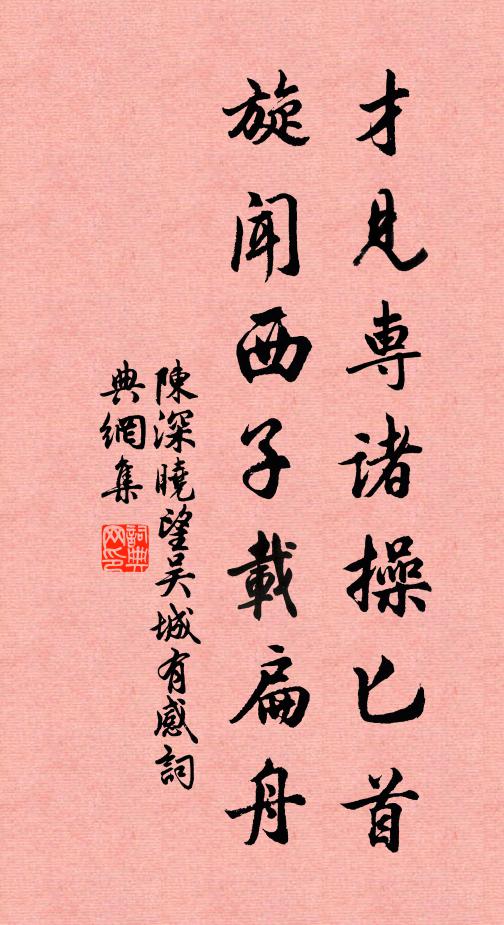 才見専諸操匕首
旋闻西子載扁舟
陳深曉望吴城有感詞
典網集
詞典
网印